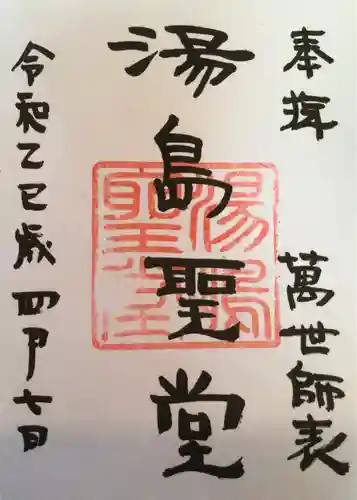 奉拝　萬世師表
湯島聖堂
令和乙巳歳四月七日
湯島聖堂